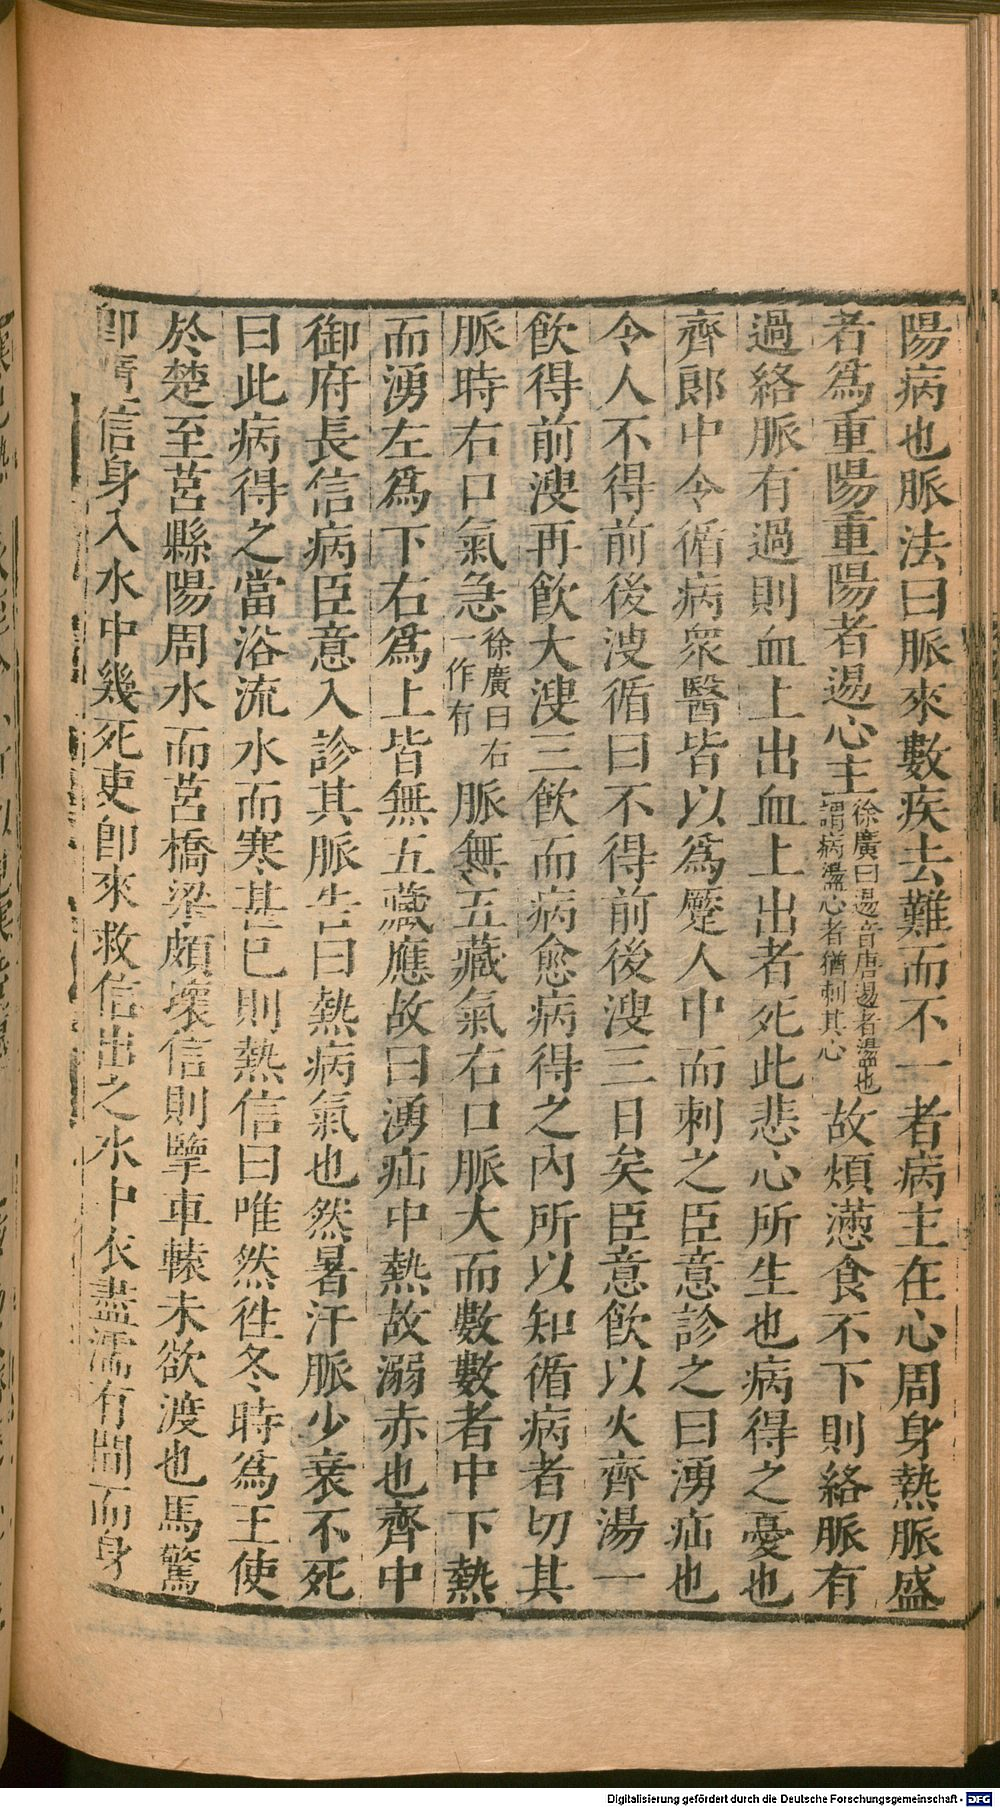 陽病也脈法曰脈來數疾去難而不一者病主在心周身熱脈盛
者爲重陽重陽者逿心主徐廣曰逿音唐逿者盪也謂病盪心者猶刺其心故煩懣食不下則絡脈有
過絡脈有過則血上出血上出者死此悲心所生也病得之憂也
齊郎中令循病衆醫皆以爲蹷人中而刺之臣意診之曰湧疝也
令人不得前後溲循曰不得前後溲三日矣臣意飮以火齊湯一
飮得前溲再飮大溲三飮而病愈病得之內所以知循病者切其
脈時右口氣急徐廣曰右一作有脈無五藏氣右口脈大而數數者中下熱
而湧左爲下右爲上皆無五藏應故曰湧疝中熱故溺赤也齊中
御府長信病臣意入診其脈告曰熱病氣也然暑汗脈少衰不死
曰此病得之當浴流水而寒甚已則熱信曰唯然徃冬時爲王使
於楚至莒縣陽周水而莒橋梁頗壞信則擥車轅未欲渡也馬驚
卽墮信身入水中幾死吏卽來救信出之水中衣盡濡有間而身
Digitalisierung gefördert durch die Deutsche Forschungsgemeinschaft - DFG